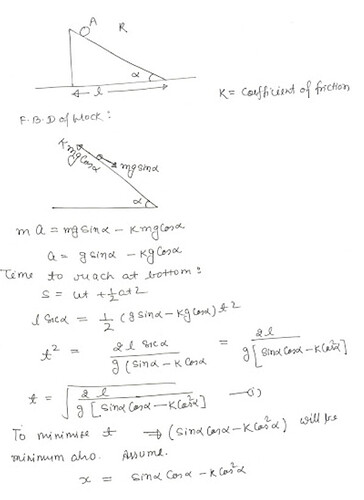 A
R
α
l
K = coefficient of friction
F.B.D of block:
K mg cosα
mg sinα
α
m a = mg sinα - K mg cosα
a = g sinα - Kg cosα
Time to reach at bottom:
s = ut + ½ at2
l secα = 1/2 (g sinα - Kg cosα) t²
t² = 2l secα / g (sinα - K cosα = 2l / g [sinα cosα - K cos²α]
t = √(2l / g [sinα cosα - K cos²α]) —(i)
To minimise t ⇒ (sinα cosα - K cos²α) will be
minimum also. Assume.
x = sinα cosα - K cos²α